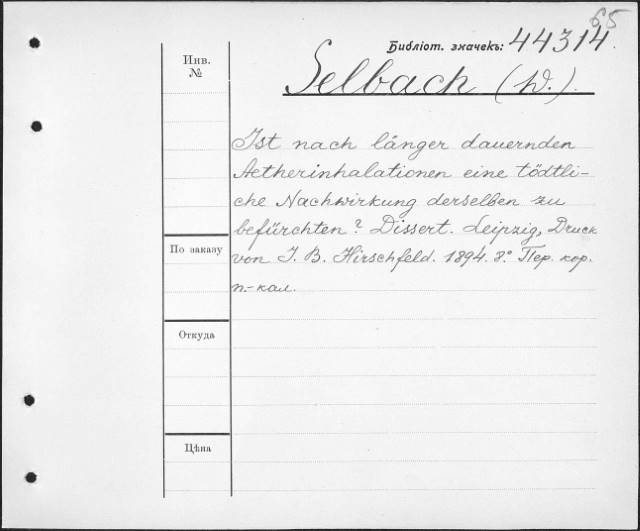 65
Библіот. значекъ: 44314.
Инв.
№
Selbach (W.).
Ist nach länger dauernden
Aetherinhalationen eine tödtli-
che Nachwirkung derselben zu
befürchten? Dissert. Leipzig, Druck
von J. B. Hirschfeld. 1894. 8.° Пер. кор.
п.-кал.
По заказу
Откуда
Цѣна